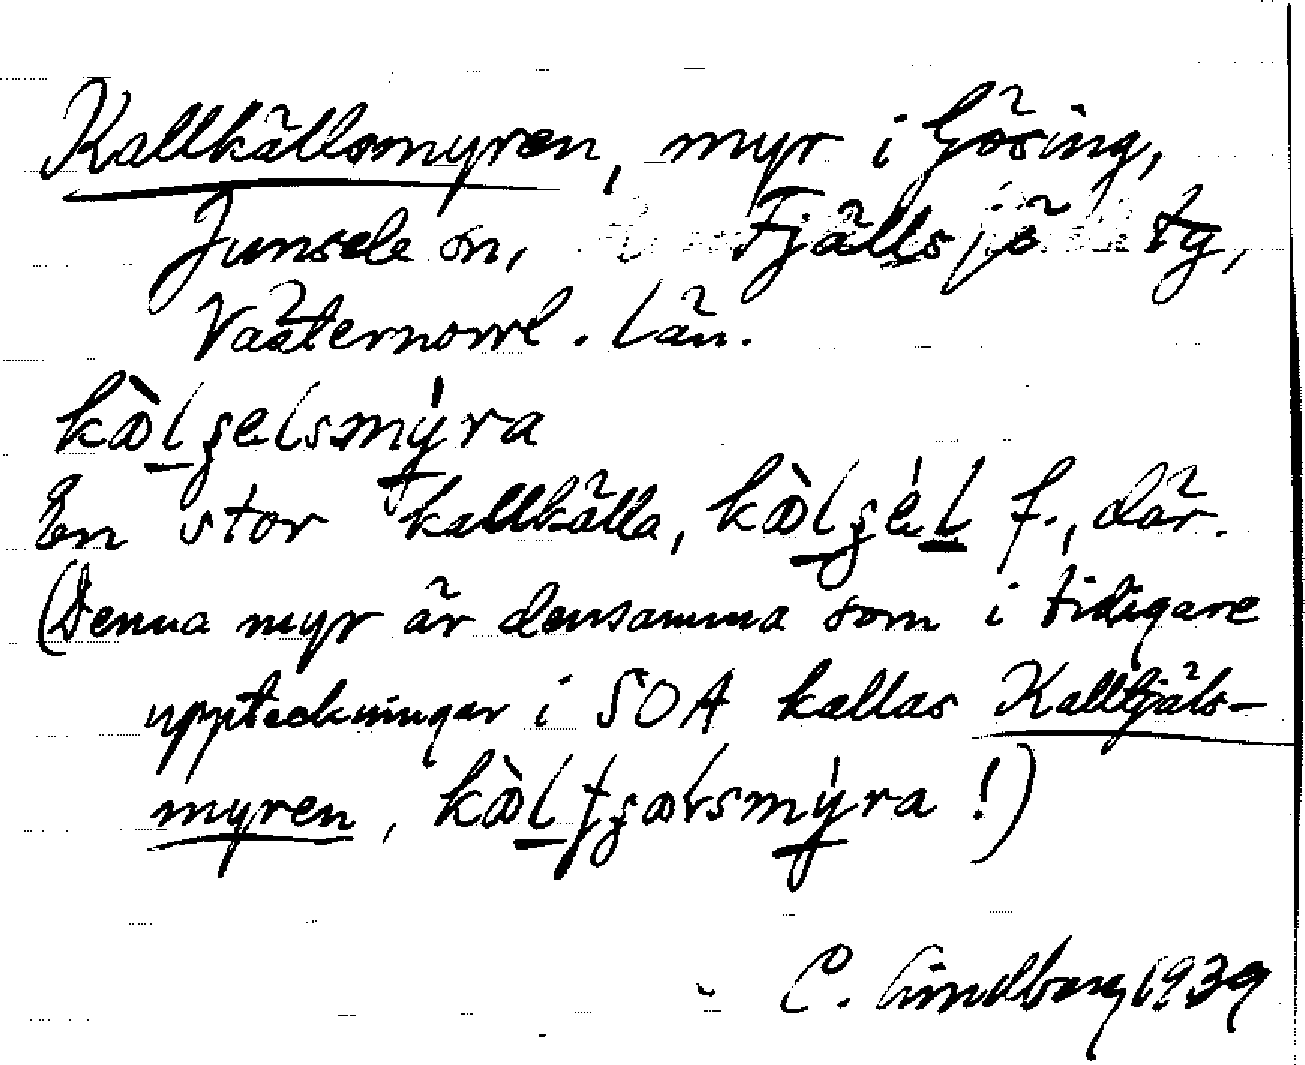 Kallkällsmyren, myr i Gösing,
Junsele sn, Fjällsjö tg,
Västernorrl. län.
En stor kallkälla, f., där.
(Denna myr är densamma som i tidigare
uppteckningar i SOA kallas Kalltjäls-
myren, !)
C. Lindberg 1939